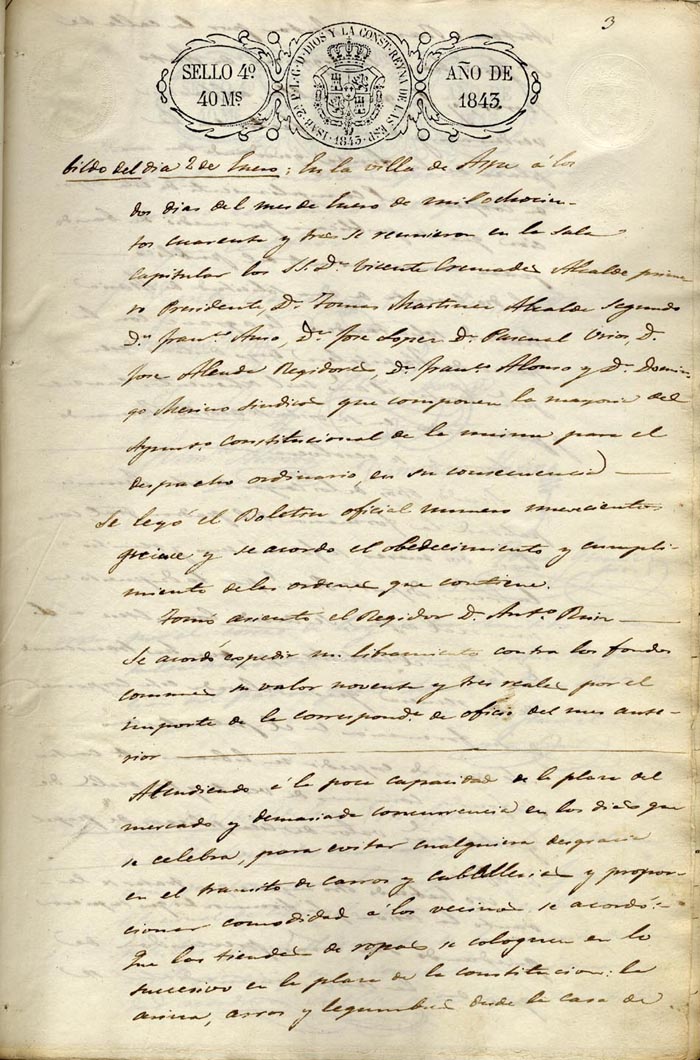 3
SELLO 4º
40 Ms
ISAB. 2ª P. L. G. D. DIOS Y LA CONST. REYNA DE LAS ESP. 1843.
AÑO DE
1843.
bildo del dia 2 de Enero; En la villa de Aspe á los
dos dias del mes de Enero de mil ochocien-
tos cuarenta y tres se reunieron en la sala
capitular los SS. Dn. Vicente Cremades Alcalde prime-
ro Presidente, Dn. Tomas Martinez Alcalde segundo
Dn. Franco. Dn. Jose Lopez Dn. Pascual D.
Jose Regidores, Dn. Franco. Alonso y Dn. Domin-
go Merino Sindicos que componen la mayoria del
Ayunto. Constitucional de la misma para el
despacho ordinario, en su consecuencia
Se leyó el Boletin oficial numero
y se acordo el obedecimiento y cumpli-
miento de las ordenes que contiene.
Tomó asiento el Regidor D. Anto.
Se acordó espedir un libramiento contra los fondos
comunes su valor noventa y tres reales por el
importe de la corresponda. de oficio del mes ante-
rior
Atendiendo á la poca capacidad de la plaza del
mercado y demasiada concurrencia en los dias que
se celebra, para evitar cualquiera desgracia
en el transito de carros y caballerias y propor-
cionar comodidad á los vecinos se acordó:
Que las tiendas de ropas se coloquen en lo
sucesivo en la plaza de la constitucion: la
arina, arros y legumbres desde la casa de